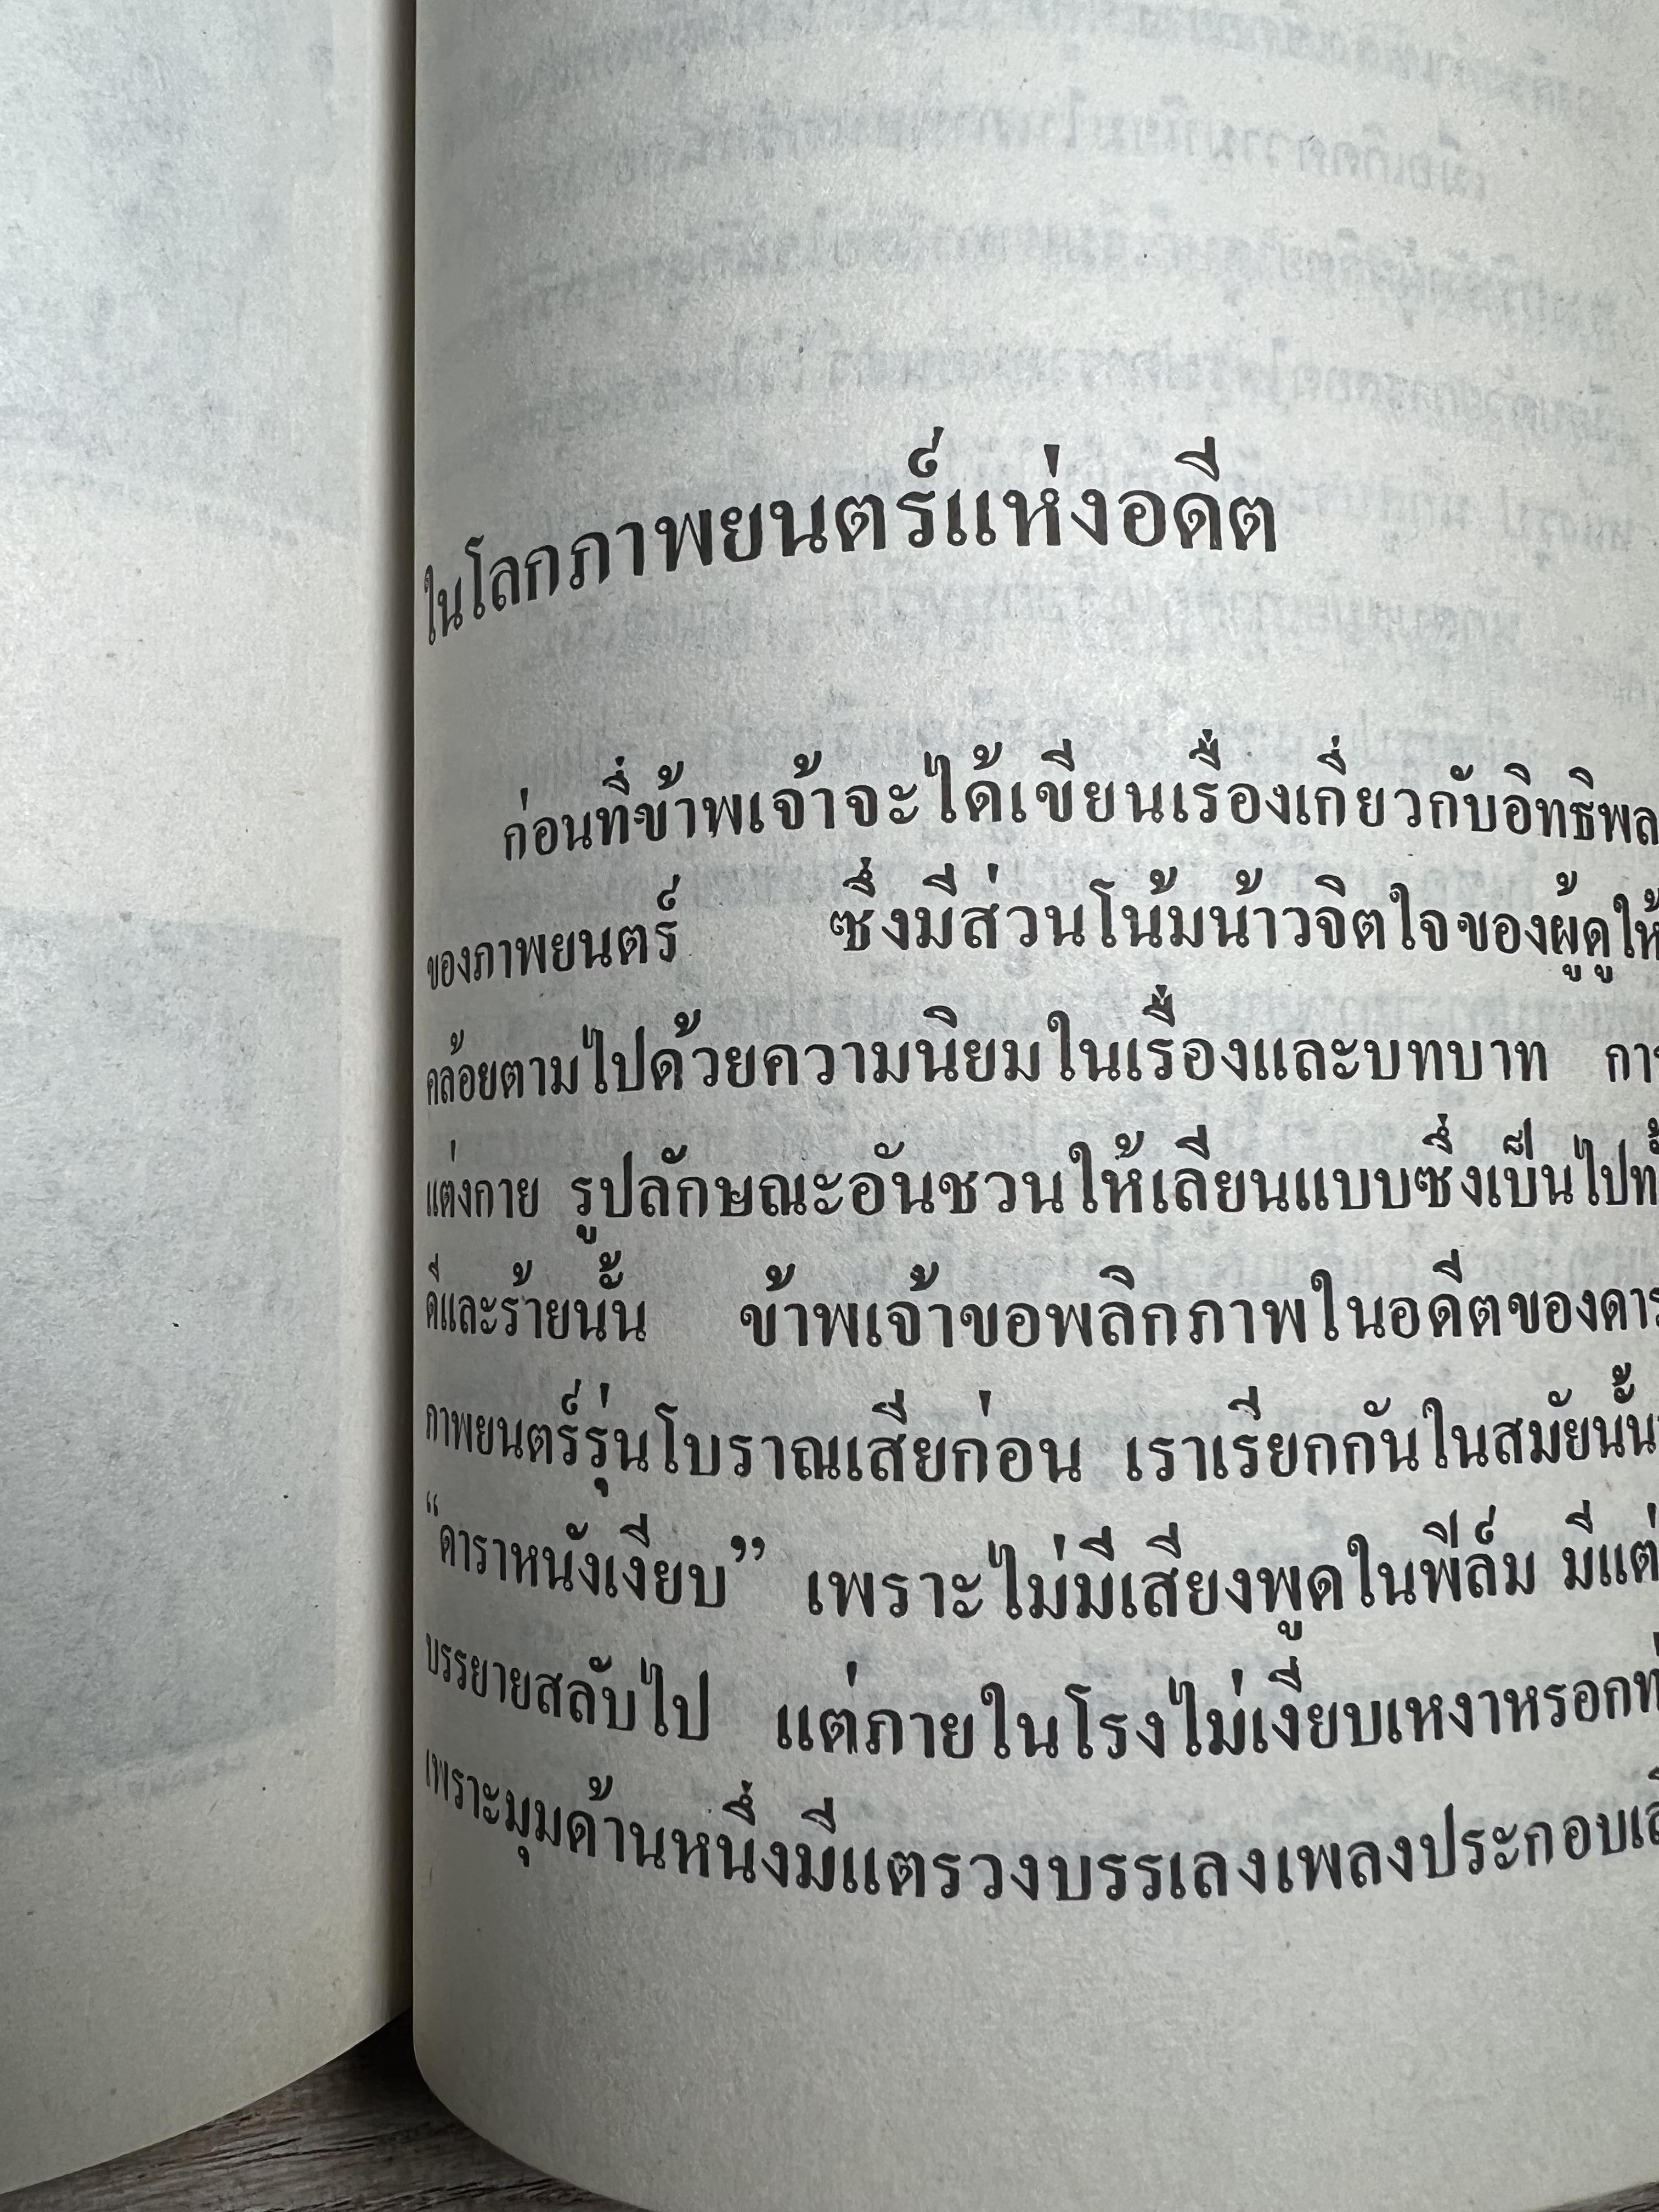 ในโลกภาพยนตร์แห่งอดีต
ก่อนที่ข้าพเจ้าจะได้เขียนเรื่องเกี่ยวกับอิทธิพล
ของภาพยนตร์ ซึ่งมีส่วนโน้มน้าวจิตใจของผู้ดูให้
คล้อยตามไปด้วยความนิยมในเรื่องและบทบาท
แต่งกาย รูปลักษณะอันชวนให้เลียนแบบซึ่งเป็นไป
ดีและร้ายนั้น ข้าพเจ้าขอพลิกภาพในอดีตของ
ภาพยนตร์รุ่นโบราณเสียก่อน เราเรียกกันในสมัยนั้น
“ดาราหนังเงียบ” เพราะไม่มีเสียงพูดในฟีล์ม มีแต่
บรรยายสลับไป แต่ภายในโรงไม่เงียบเหงาหรอก
เพราะมุมด้านหนึ่งมีแตรวงบรรเลงเพลงประกอบ